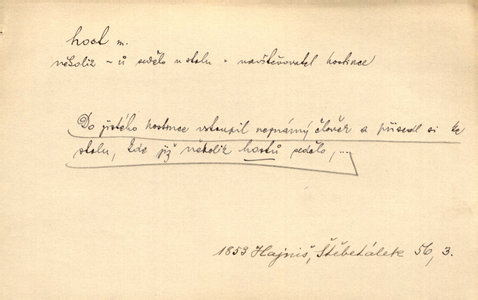 host m.
několik ~ů sedělo u stolu • navštěvovatel hostince
Do jistého hostince vstoupil neznámý člověk a přisedl si ke
stolu, kde již několik hostů sedělo, ...
1853 Hajniš, Štěbetálek 56, 3.